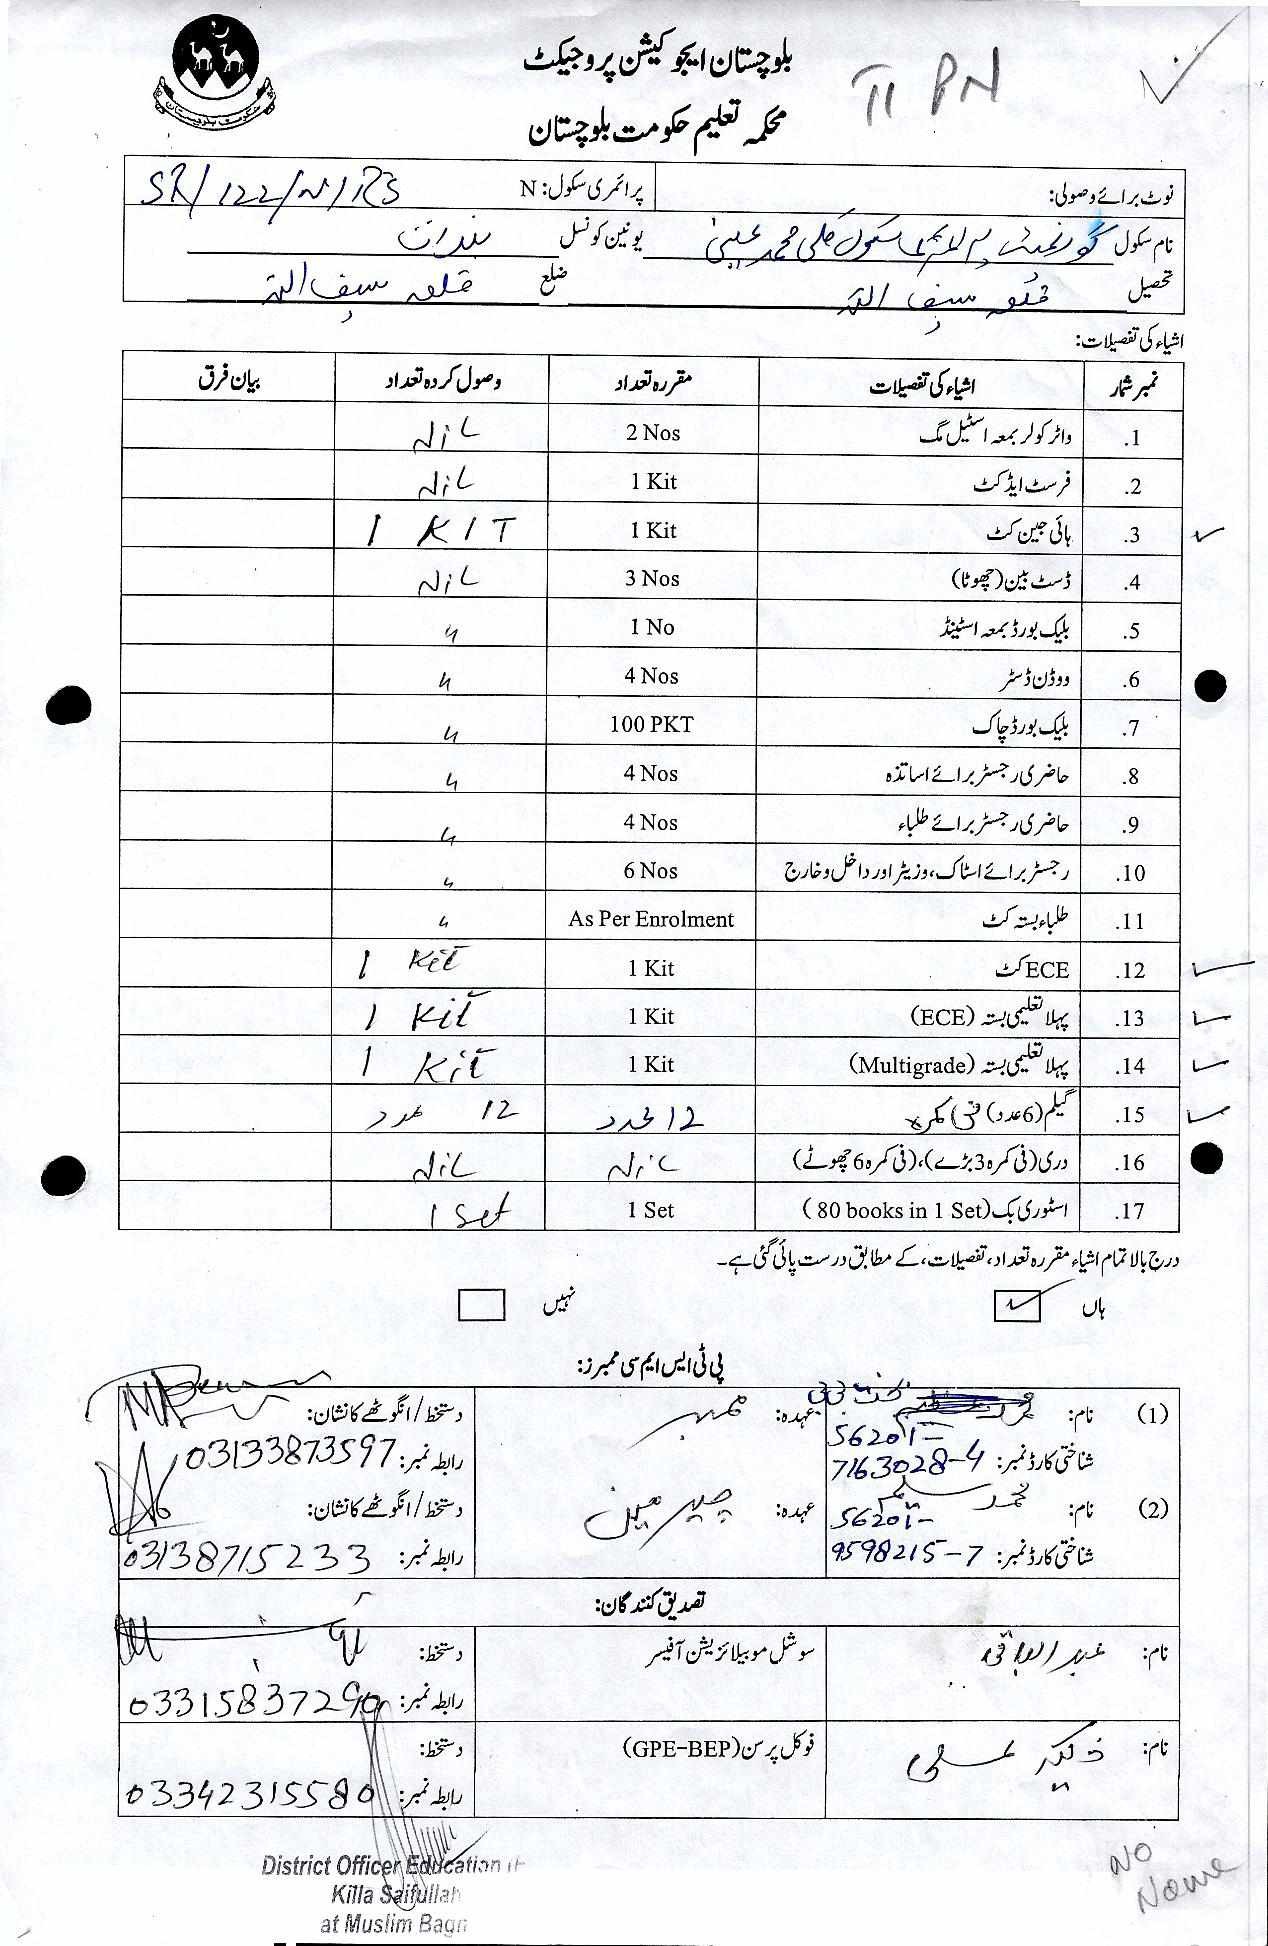 بلوچستان ایجوکیشن پروجیکٹ
TI PN
محکمہ تعلیم حکومت بلوچستان
نوٹ برائے وصولی: پرائمری سکول: N
نام سکول گورنمنٹ پرائمری سکول کلی محمد عیسیٰ یونین کونسل
تحصیل قلعہ سیف اللہ ضلع قلعہ سیف اللہ
اشیاء کی تفصیلات:
نمبر شمار اشیاء کی تفصیلات مقررہ تعداد وصول کردہ تعداد بیان فرق
1. واٹر کولر بمعہ اسٹیل مگ 2 Nos Nil
2. فرسٹ ایڈ کٹ 1 Kit Nil
3. ہائی جین کٹ 1 Kit 1 KIT
4. ڈسٹ بین (چھوٹا) 3 Nos Nil
5. بلیک بورڈ بمعہ اسٹینڈ 1 No "
6. ووڈن ڈسٹر 4 Nos "
7. بلیک بورڈ چاک 100 PKT "
8. حاضری رجسٹر برائے اساتذہ 4 Nos "
9. حاضری رجسٹر برائے طلباء 4 Nos "
10. رجسٹر برائے اسٹاک، وزیٹر اور داخل و خارج 6 Nos "
11. طلباء بستہ کٹ As Per Enrolment "
12. ECE کٹ 1 Kit 1 Kit
13. پہلا تعلیمی بستہ (ECE) 1 Kit 1 Kit
14. پہلا تعلیمی بستہ (Multigrade) 1 Kit 1 Kit
15. گیلم (6 عدد) فی کمرہ 12 عدد 12 عدد
16. دری (فی کمرہ 3 بڑے)، (فی کمرہ 6 چھوٹے) Nil Nil
17. اسٹوری بک (80 books in 1 Set) 1 Set 1 Set
درج بالا تمام اشیاء مقررہ تعداد، تفصیلات، کے مطابق درست پائی گئی ہے۔
ہاں نہیں
پی ٹی ایس ایم سی ممبرز:
(1) نام: عہدہ: ممبر دستخط/انگوٹھے کا نشان:
56201-
شناختی کارڈ نمبر: 7163028-4 رابطہ نمبر: 03133873597
(2) نام: محمد سلیم عہدہ: چیئرمین دستخط/انگوٹھے کا نشان:
56201-
شناختی کارڈ نمبر: 9598215-7 رابطہ نمبر: 03138715233
تصدیق کنندگان:
نام: عبدالباقی سوشل موبیلائزیشن آفیسر دستخط:
رابطہ نمبر: 03315837290
نام: ذکیر علی فوکل پرسن (GPE-BEP) دستخط:
رابطہ نمبر: 03342315580
District Officer Education
Killa Saifullah
at Muslim Bagh
NO
Name